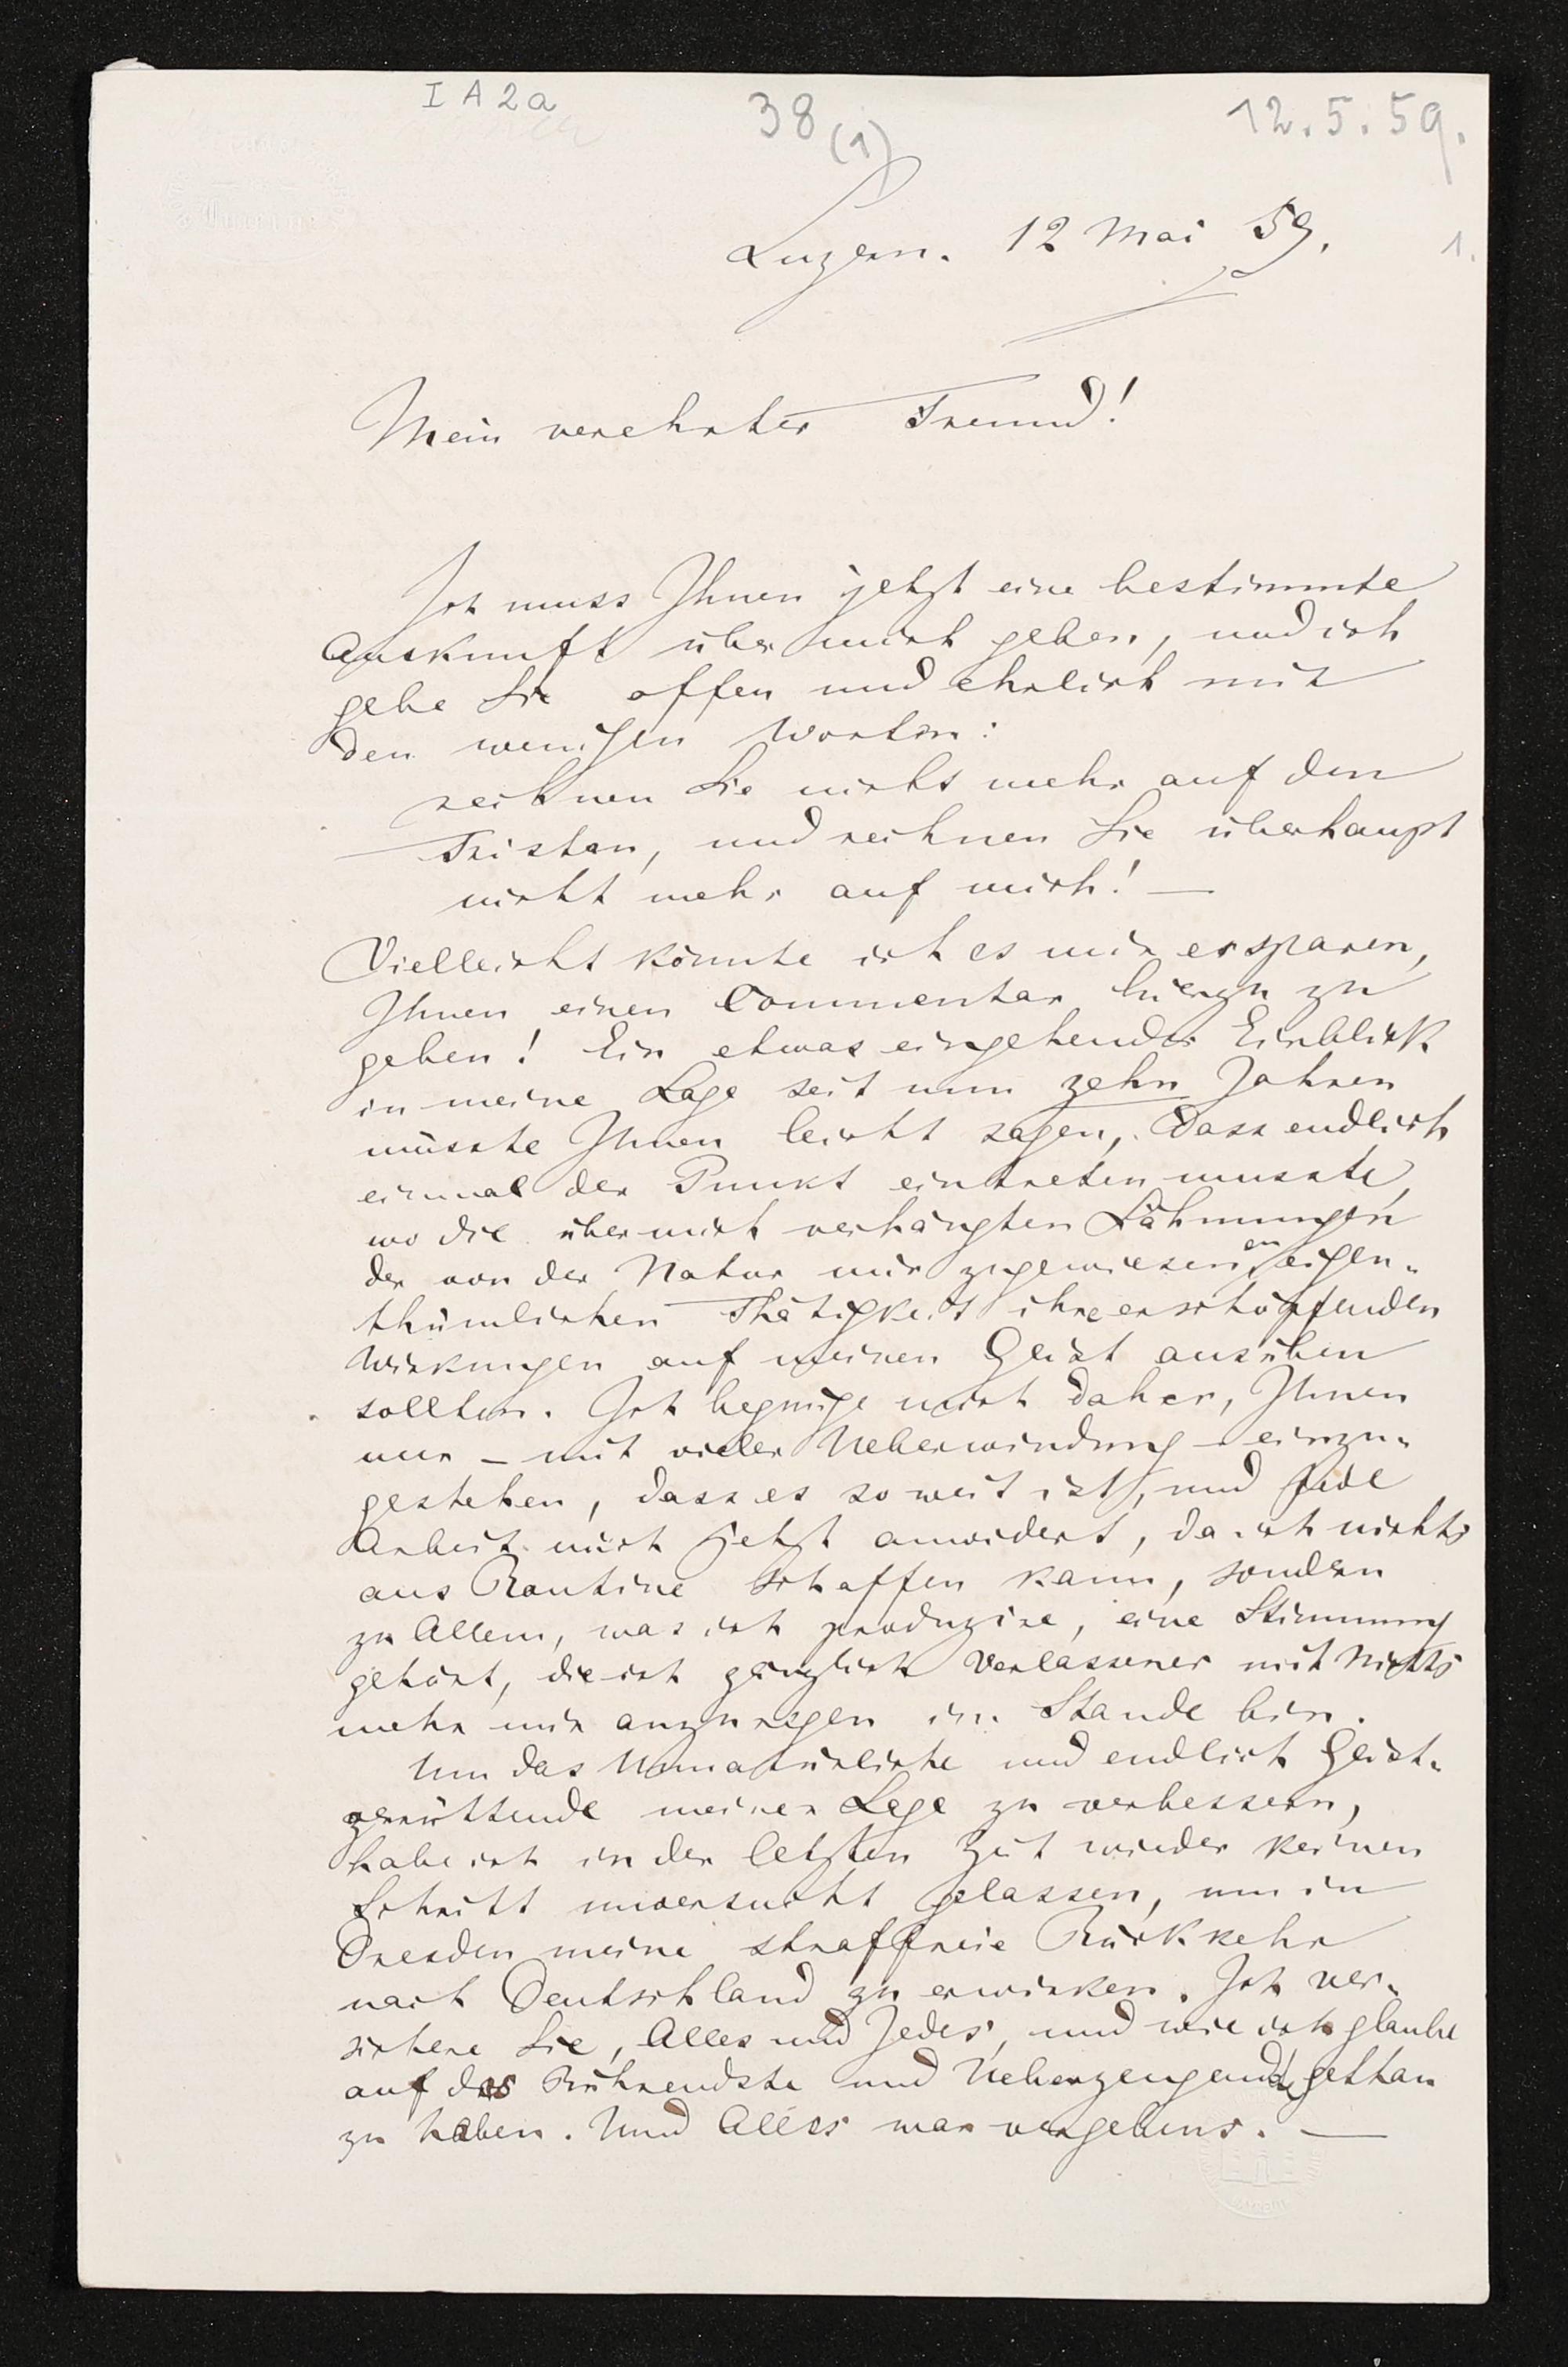 I A 2a
38 (1)
12.5.59.
Luzern. 12 Mai 59.
1.
Mein verehrter Freund!
Ich muss Ihnen jetzt eine bestimmte
Auskunft über mich geben, und ich
gebe Sie offen und ehrlich mit
den wenigen Worten:
rechnen Sie nichts mehr auf den
Tristan, und rechnen Sie überhaupt
nicht mehr auf mich! —
Vielleicht könnte ich es mir ersparen,
Ihnen einen Commentar hierzu zu
geben! Ein etwas eingehender Einblick
in meine Lage seit nun zehn Jahren
müsste Ihnen leicht sagen, dass endlich
einmal der Punkt eintreten musste,
wo die über mich verhängten Lähmungen
der von der Natur mir zugewiesenen eigen-
thümlichen Thätigkeit ihre erschöpfenden
Wirkungen auf meinen Geist ausüben
sollten. Ich begnüge mich daher, Ihnen
nur – mit vieler Ueberwindung – einzu-
gestehen, dass es so weit ist, und jede
Arbeit mich jetzt anwidert, da ich nichts
aus Routine schaffen kann, sondern
zu Allem, was ich produzire, eine Stimmung
gehört, die ich gänzlich Verlassener mit Nichts
mehr mir anzuregen im Stande bin.
Um das Unnatürliche und endlich Geist-
zerrüttende meiner Lage zu verbessern,
habe ich in der letzten Zeit wieder keinen
Schritt unversucht gelassen, um in
Dresden meine straffreie Rückkehr
nach Deutschland zu erwirken. Ich ver-
sichere Sie, Alles und Jedes, und wie ich glaube
auf das Rührendste und Ueberzeugendste gethan
zu haben. Und Alles war vergebens. —